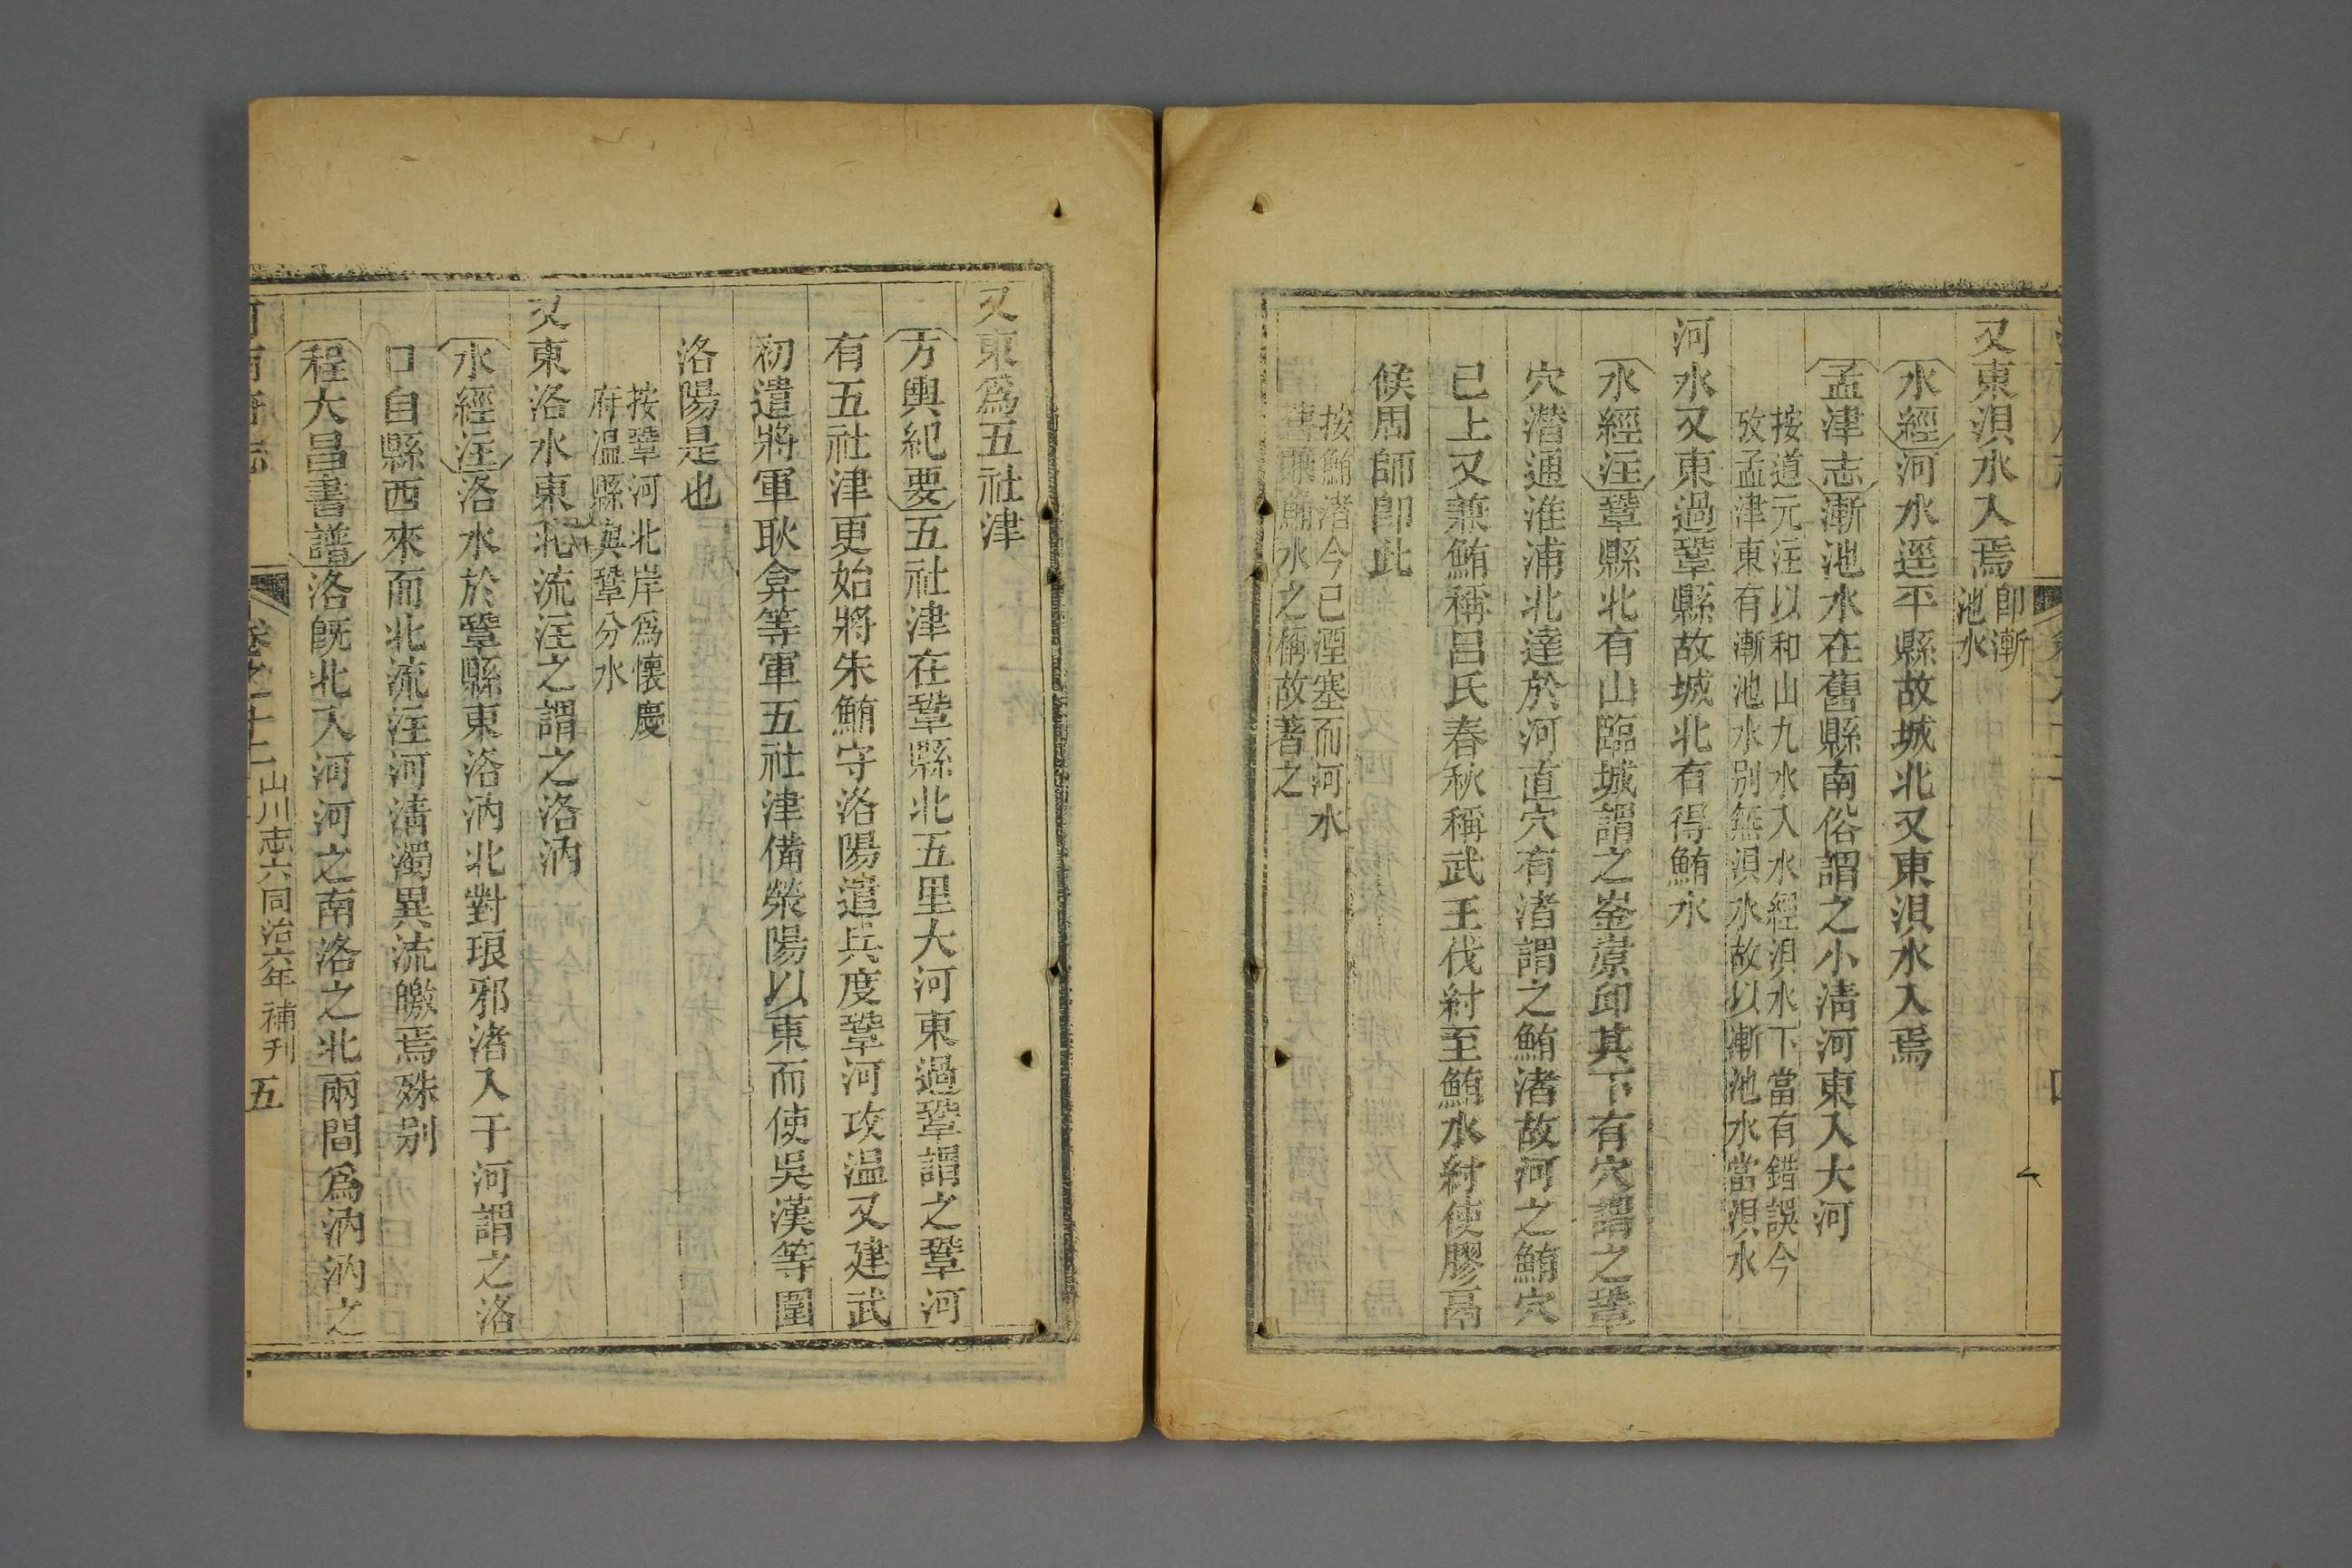 又東湨水入焉卽漸池水
水經河水逕平縣故城北又東湨水入焉
孟津志漸池水在舊縣南俗謂之小清河東入大河
按道元注以和山九水入水經湨水下當有錯誤今
攷孟津東有漸池水別無湨水故以漸池水當湨水
河水又東過鞏縣故城北有得鮪水
水經注鞏縣北有山臨城謂之崟嵳邱其下有穴謂之鞏
穴潛通淮浦北達於河直穴有渚謂之鮪渚故河之鮪穴
已上又兼鮪稱呂氏春秋稱武王伐紂至鮪水紂使膠鬲
候周師卽此
按鮪渚今已湮塞而河水
舊兼鮪水之稱故著之
又東爲五社津
方輿紀要五社津在鞏縣北五里大河東過鞏謂之鞏河
有五社津更始將朱鮪守洛陽遣兵度鞏河攻温又建武
初遣將軍耿弇等軍五社津備滎陽以東而使吳漢等圍
洛陽是也
按鞏河北岸爲懷慶
府温縣與鞏分水
又東洛水東北流注之謂之洛汭
水經注洛水於鞏縣東洛汭北對琅邪渚入于河謂之洛
口自縣西來而北流注河清濁異流皦焉殊别
程大昌書譜洛旣北入河河之南洛之北兩間爲汭汭之
卷之十二 山川志六同治六年補刋 五